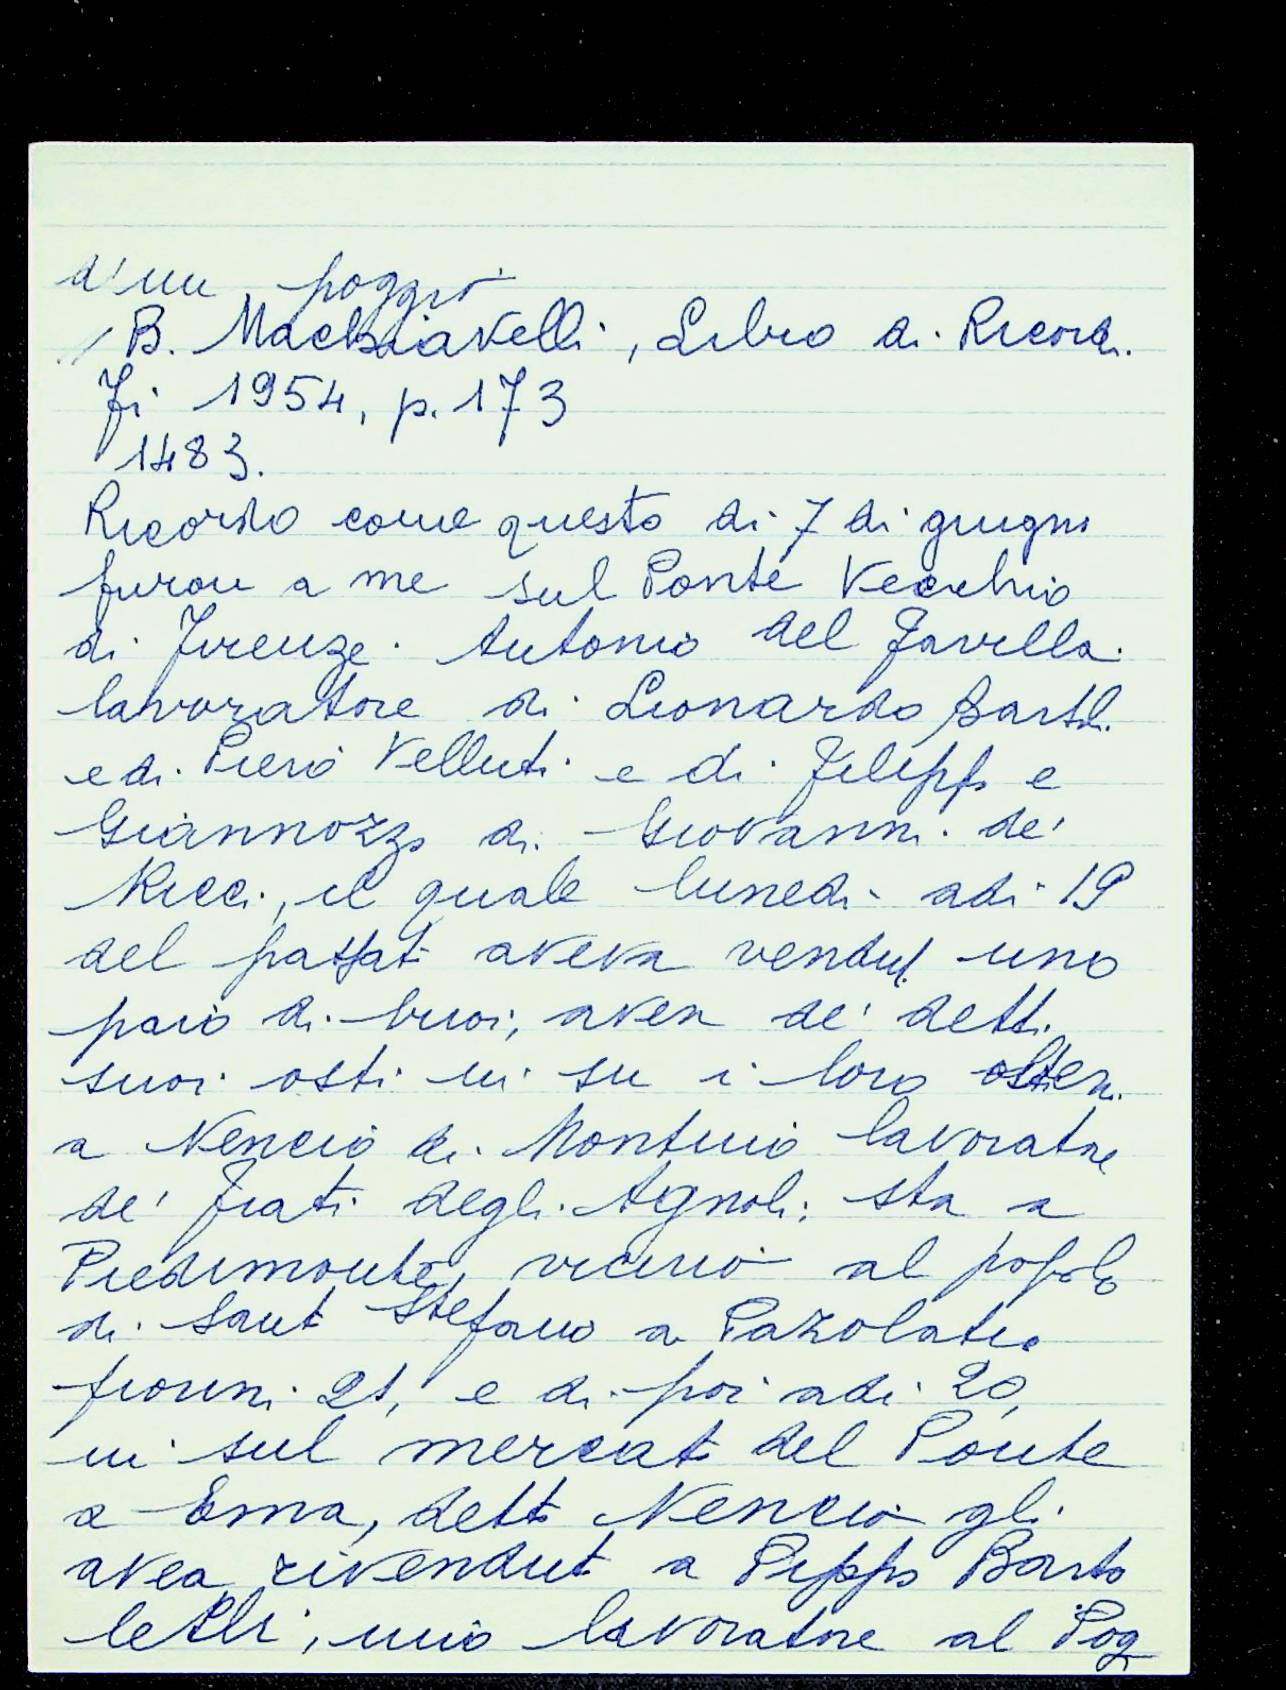 d'un poggio
B. Machiavelli, Libro di Ricordi.
Fi 1954, p. 173
1483.
Ricordo come questo di 7 di giugno
furon a me sul Ponte Vecchio
di Firenze. Antonio del Favilla
lavoratore di Lionardo Bartoli
e di Piero Velluti e di Filippo e
Giannozzo di Giovanni de'
Ricci, il quale lunedi adi 19
del passato aveva venduto uno
paio di buoi, avea de' detti
suoi osti in su i loro
a Nencio di Montuio lavoratore
de' Frati degli Agnoli, sta a
Piedimonte, vicino al popolo
di Sant Stefano a Pazolatico
fiorini 21, e di poi adi 20,
in sul mercato del Ponte
a Ema, detto Nencio gli
avea rivenduti a Pippo Barto
letti, mio lavoratore al Pog